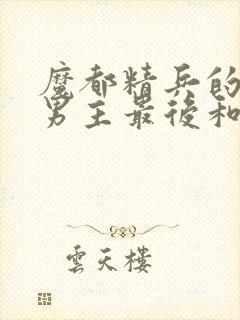 魔都精兵的
男主最後和
雲天樓